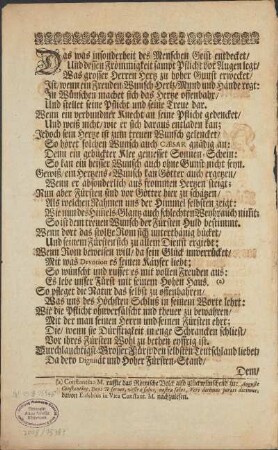 Das was insonderheit des Menschen Geist entdecket/
Und dessen Frömmigkeit sampt Pflicht vor Augen legt/
Was grosser Herren Hertz zu hoher Gunst erwecket/
Ist/ wenn ein Freuden-Wunsch Hertz/Mund und Hände regt:
In Wünschen machet sich das Hertze offenbahr/
Und stellet seine Pflicht und seine Treue dar.
Wenn ein verbundner Knecht an seine Pflicht gedencket/
Und weiß nicht/ wie er sich daraus entladen kan:
Jedoch sein Hertze ist zum treuen Wunsch gelencket/
So höret solchen Wunsch auch CÆSAR gnädig an:
Denn ein gebückter Knie geniesset Sonnen-Schein:
So kan ein bester Wunsch auch ohne Gunst nicht seyn.
Gewiß/ ein Hertzens-Wunsch kan Götter auch ergetzen/
Wenn er absonderlich aus frommen Hertzen steigt:
Nun aber Fürsten sind vor Götter hier zu schätzen/
Als welchen Nahmen uns der Himmel selbsten zeigt:
Wie nun des Himmels Glantz auch schlechten Weyhrauch nimt:
So ist dem treuen Wunsch der Fürsten Huld bestimmt.
Wenn dort das stoltze Rom sich unterthänig bücket/
Und seinem Fürsten sich zu allem Dienst ergiebt:
Wenn Rom beweisen will/ da sein Glück unverrücket/
Mit was Devotion es seinen Kayser liebt:
So wünscht und ruffet es mit vollen Freuden aus:
Es lebe unser Fürst mit seinem Hohen Haus. (a)
So pfleget die Natur das selbst zu offenbahren/
Was uns des Höchsten Schluß in seinem Worte lehrt:
Wie die Pflicht ohnverfälscht und theuer zu bewahren/
Mit der man seinen Herrn und seinen Fürsten ehrt:
Die/ wenn sie Dürfftigkeit in enge Schrancken schliest/
Vor ihres Fürsten Wohl zu bethen eyffrig ist.
Durchlauchtigst-Grosser Fürst/ den selbsten Teutschland liebet/
Da dero Dignität und Hoher Fürsten-Stand/
Dem/
(a) Constantino M. ruffte das Römische Volck also Glückwünschend zu:
davon Eusebius in Vita Constant. M. nachzulesen.